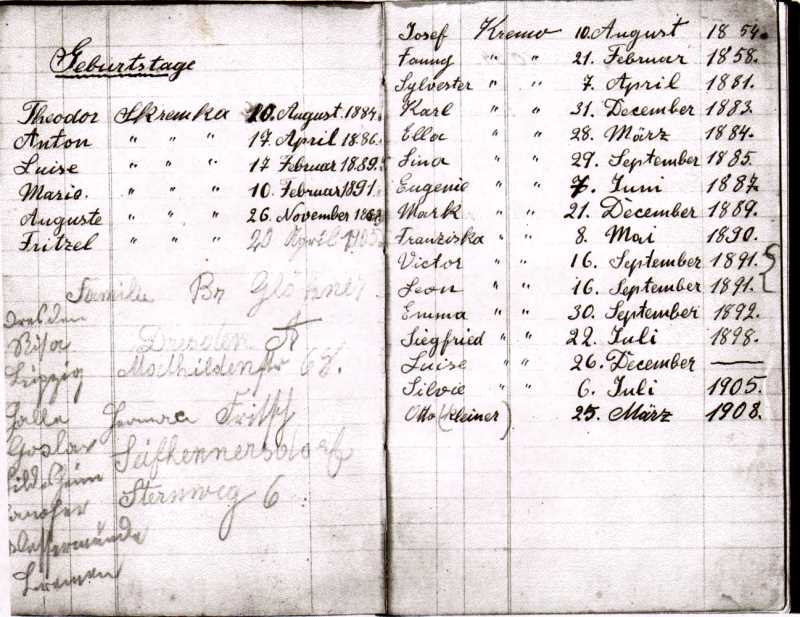 Geburtstage
Theodor Skremka 10. August. 1884.
Anton " " " 17. April. 1886.
Luise " " " 17 Februar 1889.
Marie. " " " 10. Februar 1891.
Auguste " " " 26. November
Fritzel " " " 20 April 1905
Familie Br Glöckner
Dresden
Dresden A
Risa
Mathildenstr 68.
Leipzig
Halle
Herman Fritsch
Goslar
Seifhennersdorf
Hildesheim
Sternweg 6
Hanofer
Westermünde
Bremen
Josef Kremo 10. August 1854.
Fanny " " 21. Februar 1858.
Sylvester " " 7. April 1881.
Karl " " 31. December 1883.
Ella " " 28. März 1884.
Lina " " 29. September 1885.
Eugenie " " 7. Juni 1887.
Mark " " 21. December 1889.
Franziska " " 8. Mai 1890.
Victor " " 16. September 1891.
Leon " " 16. September 1891.
Emma " " 30. September 1892.
Siegfried " " 22. Juli 1898.
Luise " " 26. December —
Silvie " " 6. Juli 1905.
Otto (kleiner) 25. März 1908.